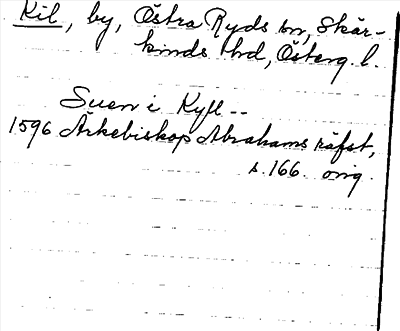 Kil, by, Östra Ryds sn, Skär-
kinds hd, Österg. l.
Suen i Kyll --
1596 Ärkebiskop Abrahams räfst,
s. 166. orig.